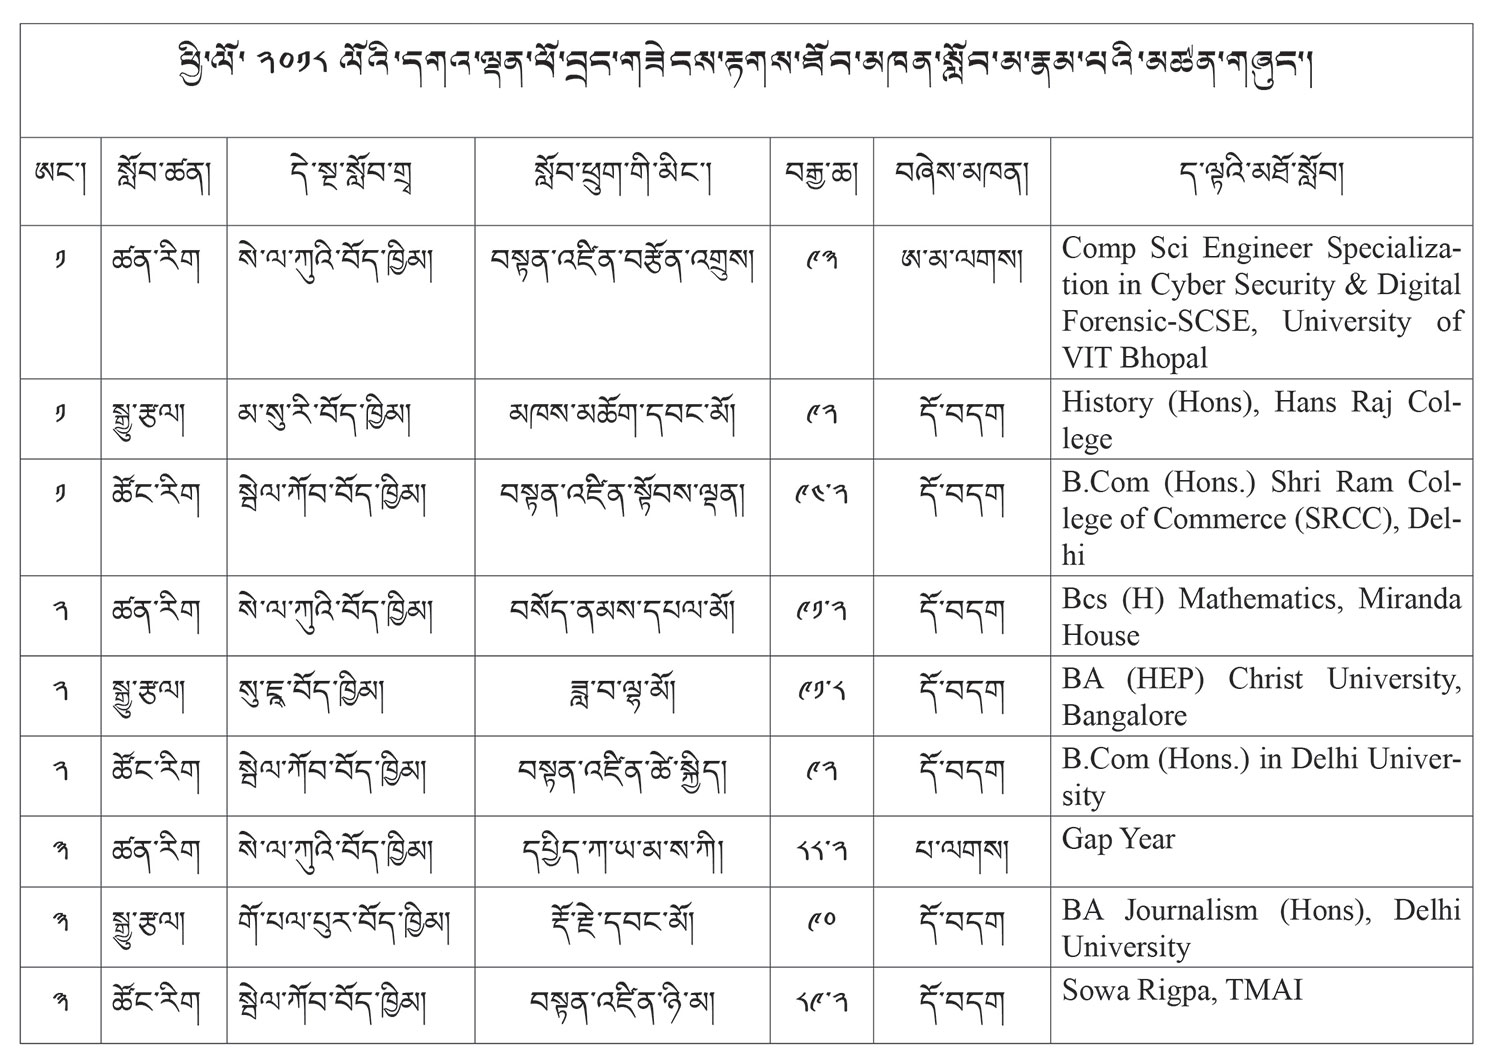 ཕྱི་ལོ་ ༢༠༡༨ ལོའི་དགའ་ལྡན་ཕོ་བྲང་གཟེངས་རྟགས་ཐོབ་མཁན་སློབ་མ་རྣམ་པའི་མཚན་གཞུང་།
ཨང་། སློབ་ཚན། དེ་སྔ་སློབ་གྲྭ སློབ་ཕྲུག་གི་མིང་། བརྒྱ་ཆ། བཞེས་མཁན། ད་ལྟའི་མཐོ་སློབ།
༡ ཚན་རིག སེ་ལ་ཀུའི་བོད་ཁྱིམ། བསྟན་འཛིན་བརྩོན་འགྲུས། ༩༣ ཨ་མ་ལགས། Comp Sci Engineer Specializa-
tion in Cyber Security & Digital
Forensic-SCSE, University of
VIT Bhopal
༡ སྒྱུ་རྩལ། མ་སུ་རི་བོད་ཁྱིམ། མཁས་མཆོག་དབང་མོ། ༩༢ དོ་བདག History (Hons), Hans Raj Col-
lege
༡ ཚོང་རིག སྦེལ་ཀོབ་བོད་ཁྱིམ། བསྟན་འཛིན་སྟོབས་ལྡན། ༩༤་༢ དོ་བདག B.Com (Hons.) Shri Ram Col-
lege of Commerce (SRCC), Del-
hi
༢ ཚན་རིག སེ་ལ་ཀུའི་བོད་ཁྱིམ། བསོད་ནམས་དཔལ་མོ། ༩༡་༢ དོ་བདག Bcs (H) Mathematics, Miranda
House
༢ སྒྱུ་རྩལ། སུ་ཇྰ་བོད་ཁྱིམ། ཟླ་བ་ལྷ་མོ། ༩༡་༨ དོ་བདག BA (HEP) Christ University,
Bangalore
༢ ཚོང་རིག སྦེལ་ཀོབ་བོད་ཁྱིམ། བསྟན་འཛིན་ཚེ་སྐྱིད། ༩༢ དོ་བདག B.Com (Hons.) in Delhi Univer-
sity
༣ ཚན་རིག སེ་ལ་ཀུའི་བོད་ཁྱིམ། དཔྱིད་ཀ་ཡ་མ་ས་ཀི། ༨༨་༢ པ་ལགས། Gap Year
༣ སྒྱུ་རྩལ། གོ་པལ་པུར་བོད་ཁྱིམ། རྡོ་རྗེ་དབང་མོ། ༩༠ དོ་བདག BA Journalism (Hons), Delhi
University
༣ ཚོང་རིག སྦེལ་ཀོབ་བོད་ཁྱིམ། བསྟན་འཛིན་ཉི་མ། ༨༩་༢ དོ་བདག Sowa Rigpa, TMAI